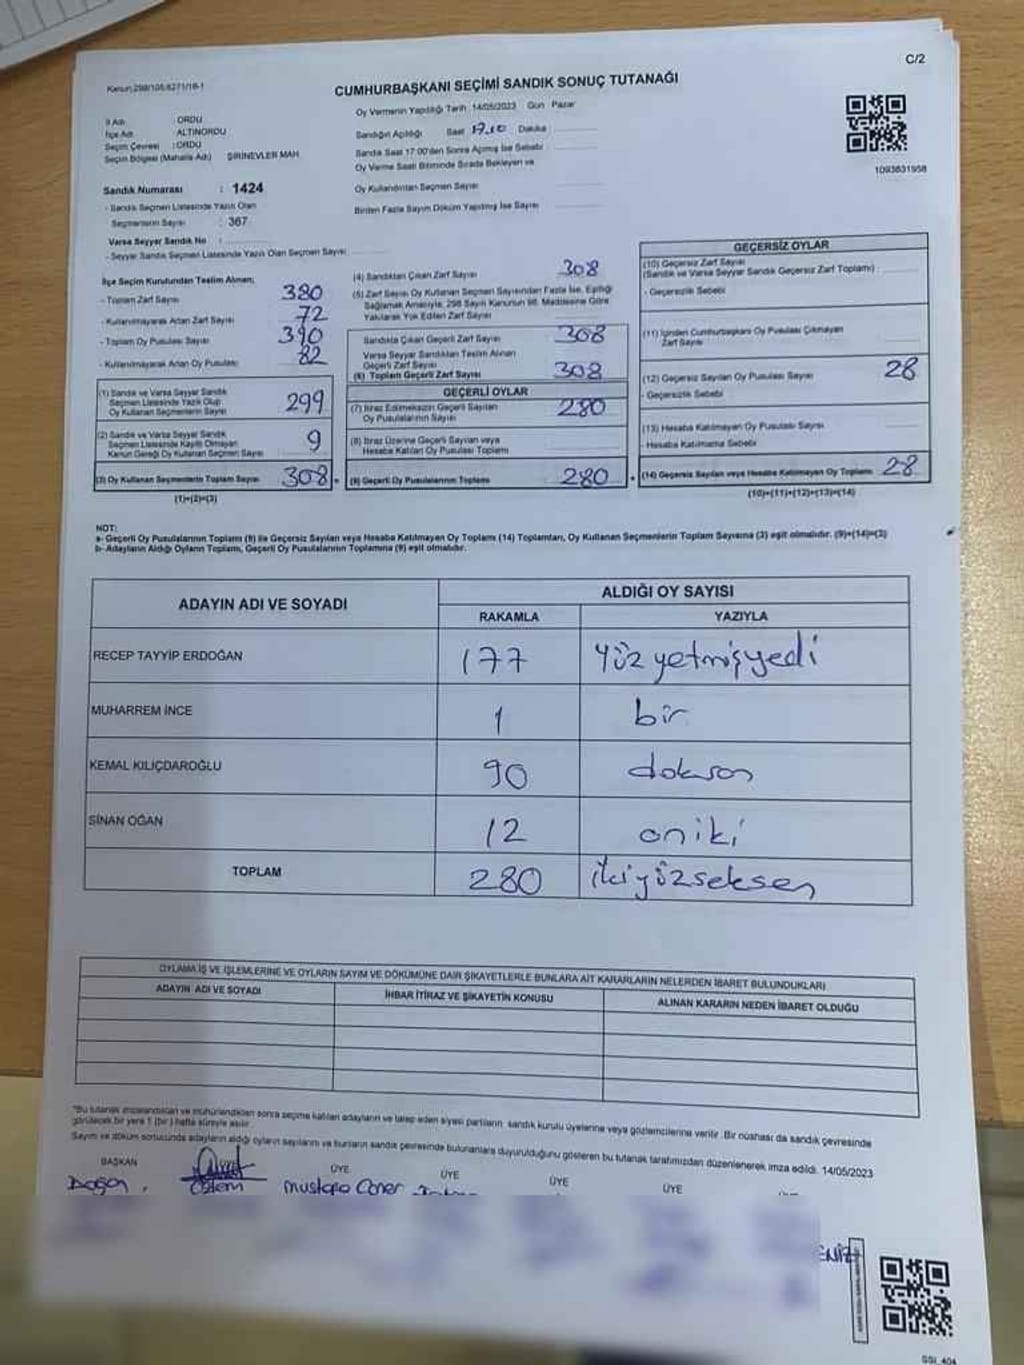 C/2
Kanun:298/105.6271/16-1
CUMHURBAŞKANI SEÇİMİ SANDIK SONUÇ TUTANAĞI
İl Adı : ORDU
İlçe Adı : ALTINORDU
Seçim Çevresi : ORDU
Seçim Bölgesi (Mahalle Adı) ŞİRİNEVLER MAH.
Sandık Numarası : 1424
- Sandık Seçmen Listesinde Yazılı Olan
Seçmenlerin Sayısı : 367
Varsa Seyyar Sandık No :
- Seyyar Sandık Seçmen Listesinde Yazılı Olan Seçmen Sayısı
Oy Vermenin Yapıldığı Tarih 14/05/2023 Gün Pazar
Sandığın Açılışı Saat 17.10 Dakika
Sandık Saat 17:00'den Sonra Açılmış İse Sebebi
Oy Verme Saati Bitiminde Sırada Bekleyen ve
Oy Kullandırılan Seçmen Sayısı
Birden Fazla Sayım Döküm Yapılmış İse Sayısı
1093831958
İlçe Seçim Kurulundan Teslim Alınan;
- Toplam Zarf Sayısı 380
- Kullanılmayarak Artan Zarf Sayısı 72
- Toplam Oy Pusulası Sayısı 390
- Kullanılmayarak Artan Oy Pusulası 82
(1) Sandık ve Varsa Seyyar Sandık
Seçmen Listesinde Yazılı Olup
Oy Kullanan Seçmenlerin Sayısı 299
(2) Sandık ve Varsa Seyyar Sandık
Seçmen Listesinde Kayıtlı Olmayan
Kanun Gereği Oy Kullanan Seçmen Sayısı 9
(3) Oy Kullanan Seçmenlerin Toplam Sayısı 308
(1)+(2)=(3)
(4) Sandıktan Çıkan Zarf Sayısı 308
(5) Zarf Sayısı Oy Kullanan Seçmen Sayısından Fazla İse, Eşitliği
Sağlamak Amacıyla, 298 Sayılı Kanunun 98. Maddesine Göre
Yakılarak Yok Edilen Zarf Sayısı
Sandıkta Çıkan Geçerli Zarf Sayısı 308
Varsa Seyyar Sandıktan Teslim Alınan
Geçerli Zarf Sayısı
(6) Toplam Geçerli Zarf Sayısı 308
GEÇERLİ OYLAR
(7) İtiraz Edilmeksizin Geçerli Sayılan
Oy Pusulalarının Sayısı 280
(8) İtiraz Üzerine Geçerli Sayılan veya
Hesaba Katılan Oy Pusulası Toplamı
(9) Geçerli Oy Pusulalarının Toplamı 280
GEÇERSİZ OYLAR
(10) Geçersiz Zarf Sayısı
(Sandık ve Varsa Seyyar Sandık Geçersiz Zarf Toplamı)
- Geçersizlik Sebebi
(11) İçinden Cumhurbaşkanı Oy Pusulası Çıkmayan
Zarf Sayısı
(12) Geçersiz Sayılan Oy Pusulası Sayısı 28
- Geçersizlik Sebebi
(13) Hesaba Katılmayan Oy Pusulası Sayısı
- Hesaba Katılmama Sebebi
(14) Geçersiz Sayılan veya Hesaba Katılmayan Oy Toplamı 28
(10)+(11)+(12)+(13)=(14)
NOT:
a- Geçerli Oy Pusulalarının Toplamı (9) ile Geçersiz Sayılan veya Hesaba Katılmayan Oy Toplamı (14) Toplamları, Oy Kullanan Seçmenlerin Toplam Sayısına (3) eşit olmalıdır. (9)+(14)=(3)
b- Adayların Aldığı Oyların Toplamı, Geçerli Oy Pusulalarının Toplamına (9) eşit olmalıdır.
ADAYIN ADI VE SOYADI ALDIĞI OY SAYISI
RAKAMLA YAZIYLA
RECEP TAYYİP ERDOĞAN 177 Yüz yetmişyedi
MUHARREM İNCE 1 bir
KEMAL KILIÇDAROĞLU 90 doksan
SİNAN OĞAN 12 oniki
TOPLAM 280 ikiyüzseksen
OYLAMA İŞ VE İŞLEMLERİNE VE OYLARIN SAYIM VE DÖKÜMÜNE DAİR ŞİKAYETLERLE BUNLARA AİT KARARLARIN NELERDEN İBARET BULUNDUKLARI
ADAYIN ADI VE SOYADI İHBAR İTİRAZ VE ŞİKAYETİN KONUSU ALINAN KARARIN NEDEN İBARET OLDUĞU
*Bu tutanak imzalandıktan ve mühürlendikten sonra seçime katılan adayların ve talep eden siyasi partilerin sandık kurulu üyelerine veya gözlemcilerine verilir. Bir nüshası da sandık çevresinde
görülecek bir yere 1 (bir) hafta süreyle asılır.
Sayım ve döküm sonucunda adayların aldığı oyların sayılarını ve bunların sandık çevresinde bulunanlara duyurulduğunu gösteren bu tutanak tarafımızdan düzenlenerek imza edildi. 14/05/2023
BAŞKAN ÜYE ÜYE ÜYE ÜYE
Doğan Özlem Mustafa Caner
ENİZ
SSİ_404